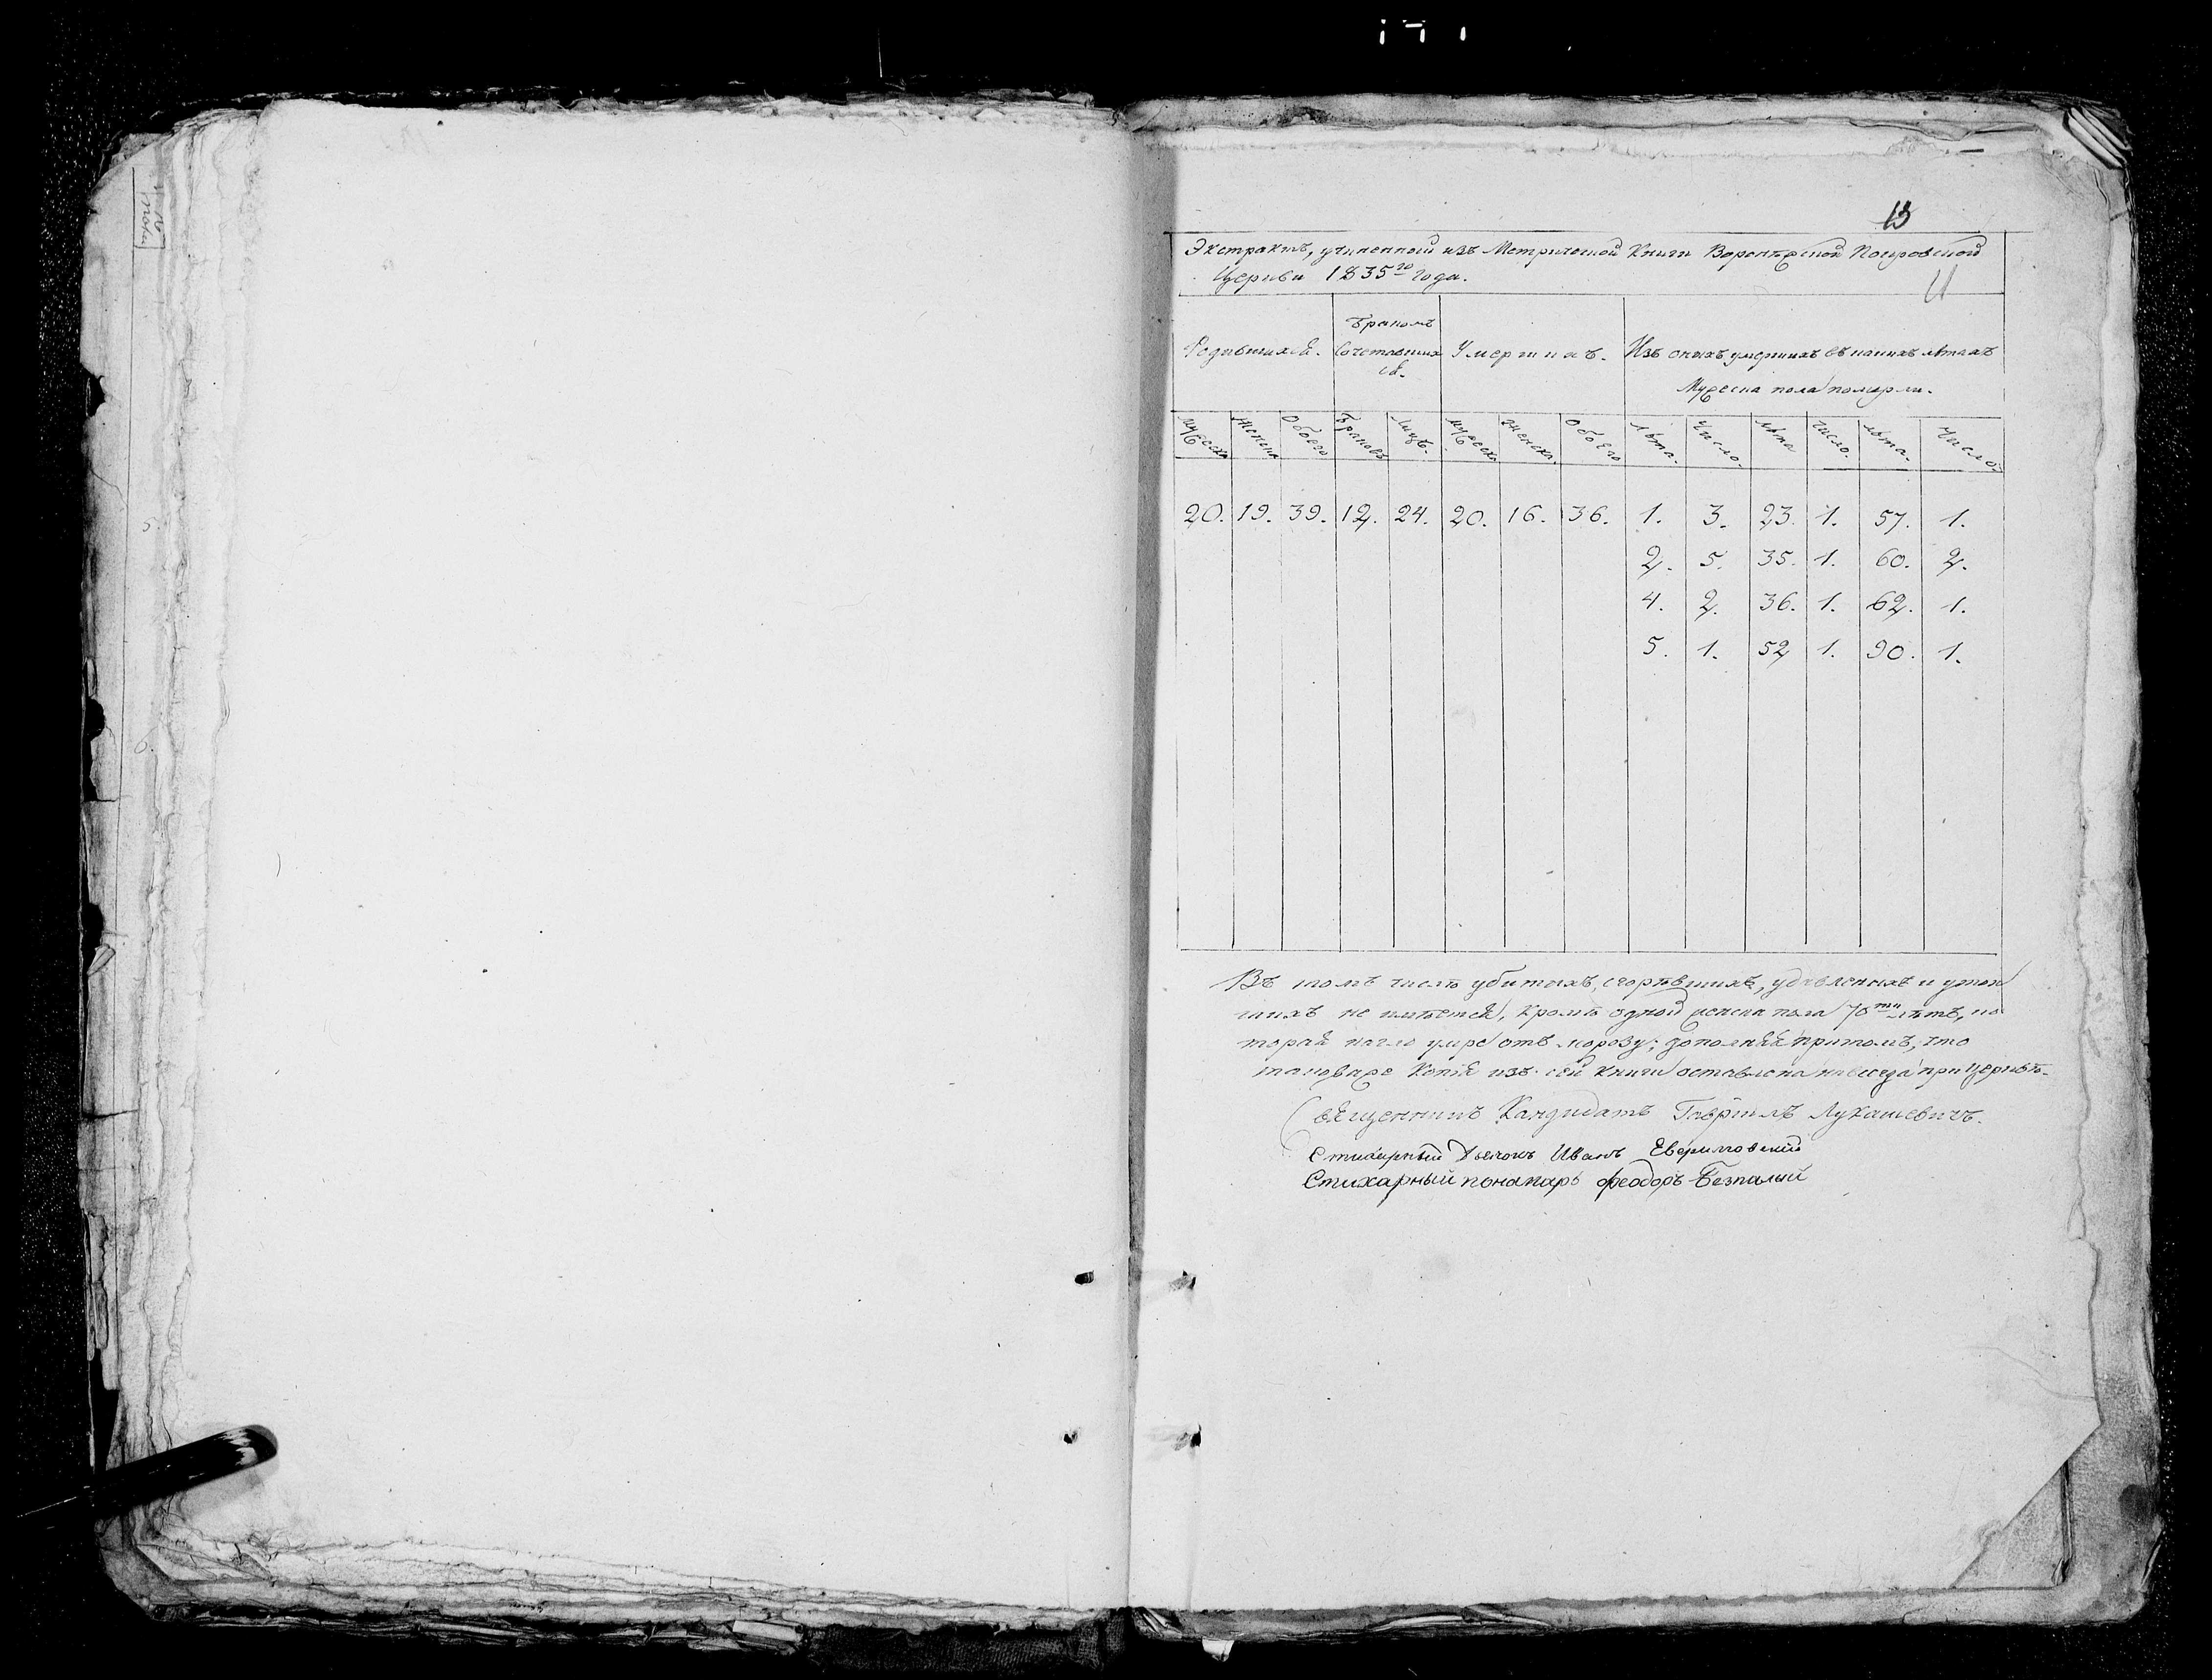 13
Экстрактъ, учиненной изъ Метрической Книги Воронѣжской Покровской
Церкви 1835го Года.
Родившихся.
Бракомъ
Сочетавших
ся.
Умершихъ.
Изъ оныхъ умершихъ въ какихъ лѣтахъ
Мужеска пола померли.
мужеска женска Обоего Браковъ Лицъ. мужеска женска. Обоего лѣта. Число. лѣта число. лѣта. Число
20. 19. 39. 12. 24. 20. 16. 36. 1. 3. 23. 1. 57. 1.
2. 5. 35. 1. 60. 2.
4. 2. 36. 1. 62. 1.
5. 1. 52 1. 90. 1.
Въ томъ числѣ убитыхъ, сгорѣвшихъ, удавленыхъ и утоп
шихъ не имѣется, кромѣ одной женска пола 70ти лѣтъ, ко
торая нагло умре отъ морозу; дополняя притомъ, что
таковаже Копія изъ сей книги оставлена навсегда при церквѣ.
Священникъ Кандидатъ Гавріилъ Лукашевичъ.
Стихарный Дьячокъ Иванъ
Стихарный понамарь Феодоръ Безпалый